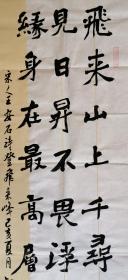 飛来山上千尋
見日昇不畏浮
緣身在最高層
宋人王安石詩登飛来峰己亥夏月